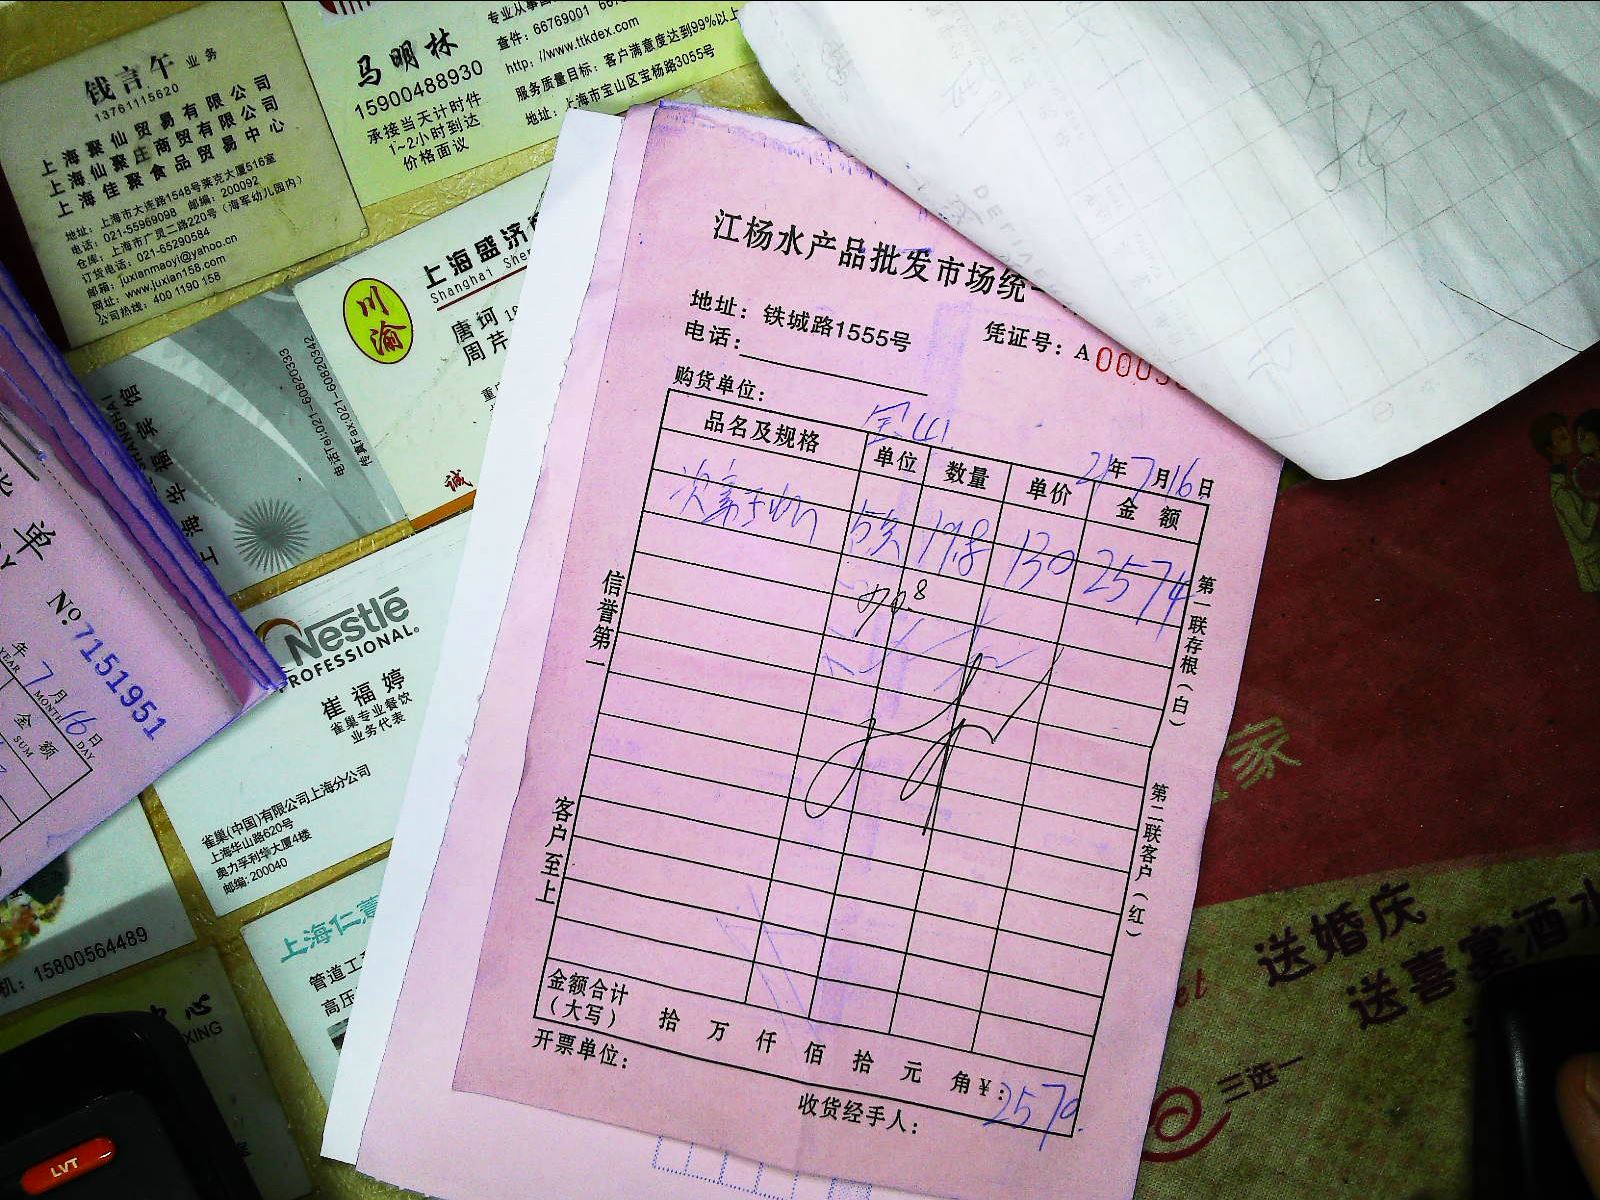 钱言午 业务
13761115620
上海聚仙贸易有限公司
上海仙聚庄商贸有限公司
上海佳聚食品贸易中心
地址：上海市大连路1548号莱克大厦516室
电话：021-55969098 邮编：200092
仓库：上海市广灵二路220号（海军幼儿园内）
订货电话：021-65290584
邮箱：juxianmaoyi@yahoo.cn
网址：www.juxian158.com
公司热线：400 1190 158
马明林
15900488930
承接当天计时件
1~2小时到达
价格面议
专业从事
查件：66769001
http://www.ttkdex.com
服务质量目标：客户满意度达到99%以上
地址：上海市宝山区宝杨路3055号
川渝
上海盛济
Shanghai Shen
唐珂
周芹
诚
上海华福宾馆
电话Tel:021-60820333
传真Fax:021-60820342
单
No.7151951
年 7 月 16 日
YEAR MONTH DAY
金额
SUM
Nestlé
PROFESSIONAL.
崔福婷
雀巢专业餐饮
业务代表
雀巢(中国)有限公司上海分公司
上海华山路620号
奥力孚利华大厦4楼
邮编：200040
机：15800564489
中心
XING
上海仁
管道工
高压
LVT
江杨水产品批发市场统一
地址：铁城路1555号
凭证号：A 000
电话：
购货单位：
宝山
21年7月16日
品名及规格 单位 数量 单价 金额
19.8 130 2574
信誉第一
客户至上
第一联存根（白）
第二联客户（红）
金额合计
（大写） 拾 万 仟 佰 拾 元 角 ¥：2570.
开票单位：
收货经手人：
家
送婚庆
送喜宴酒水
三选一